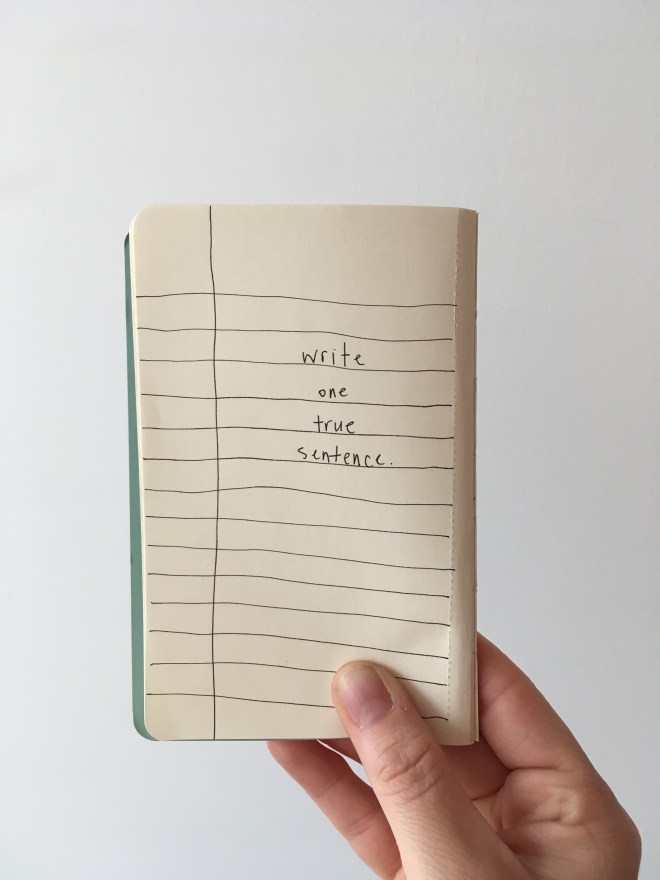 write
one
true
sentence.